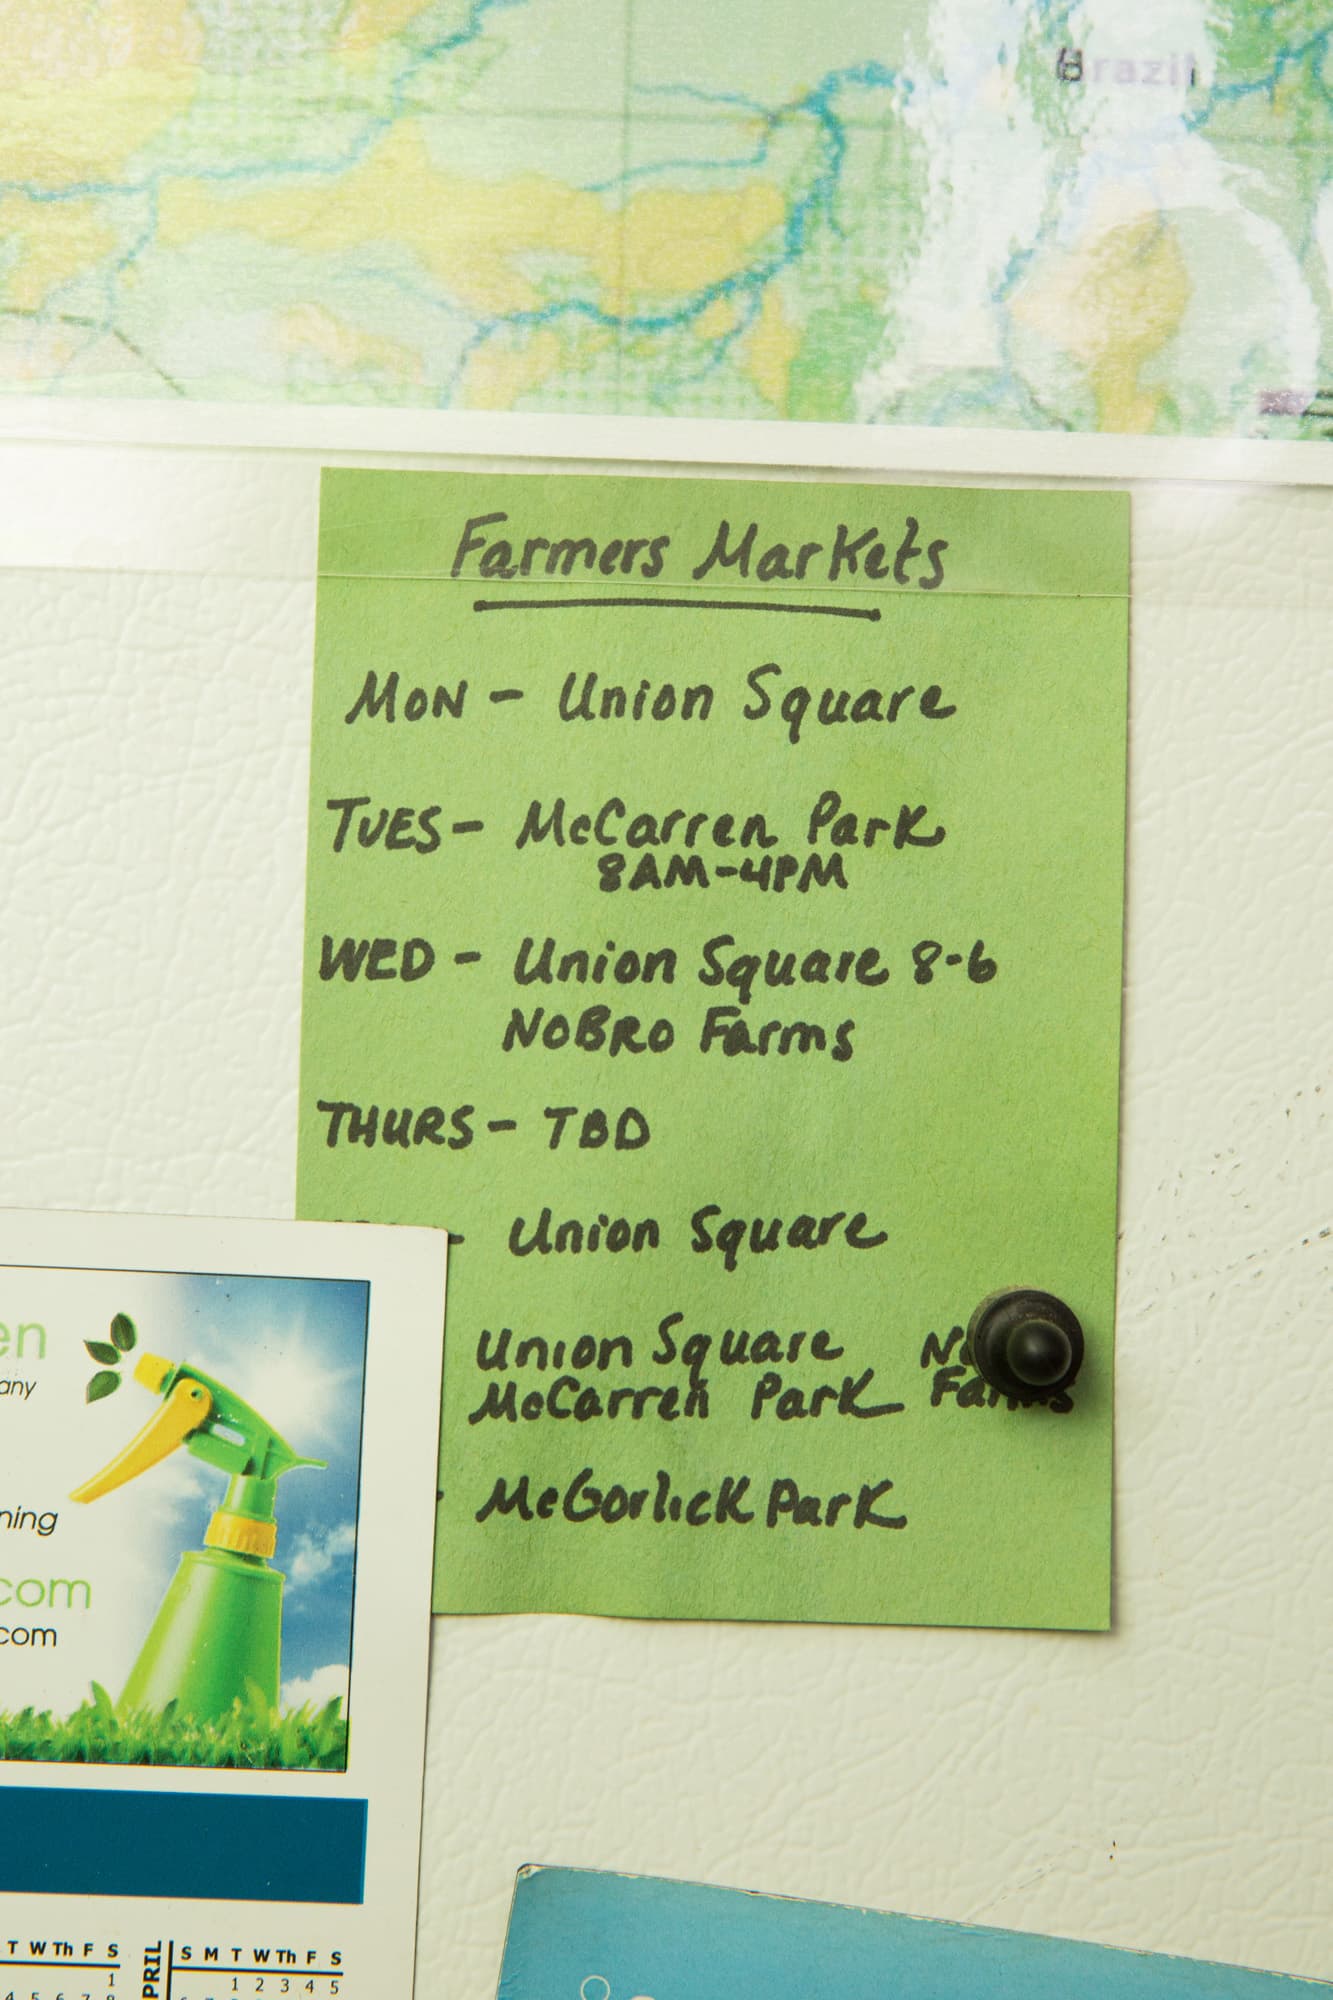 Brazil
Farmers Markets
MON - Union Square
TUES - McCarren Park
8AM-4PM
WED - Union Square 8-6
NOBRO Farms
THURS - TBD
- Union Square
Union Square
McCarren Park Farms
- McGorlick Park
en
any
ning
com
com
T W Th F S
1
4 5 6 7 8
PRIL
S M T W Th F S
1 2 3 4 5